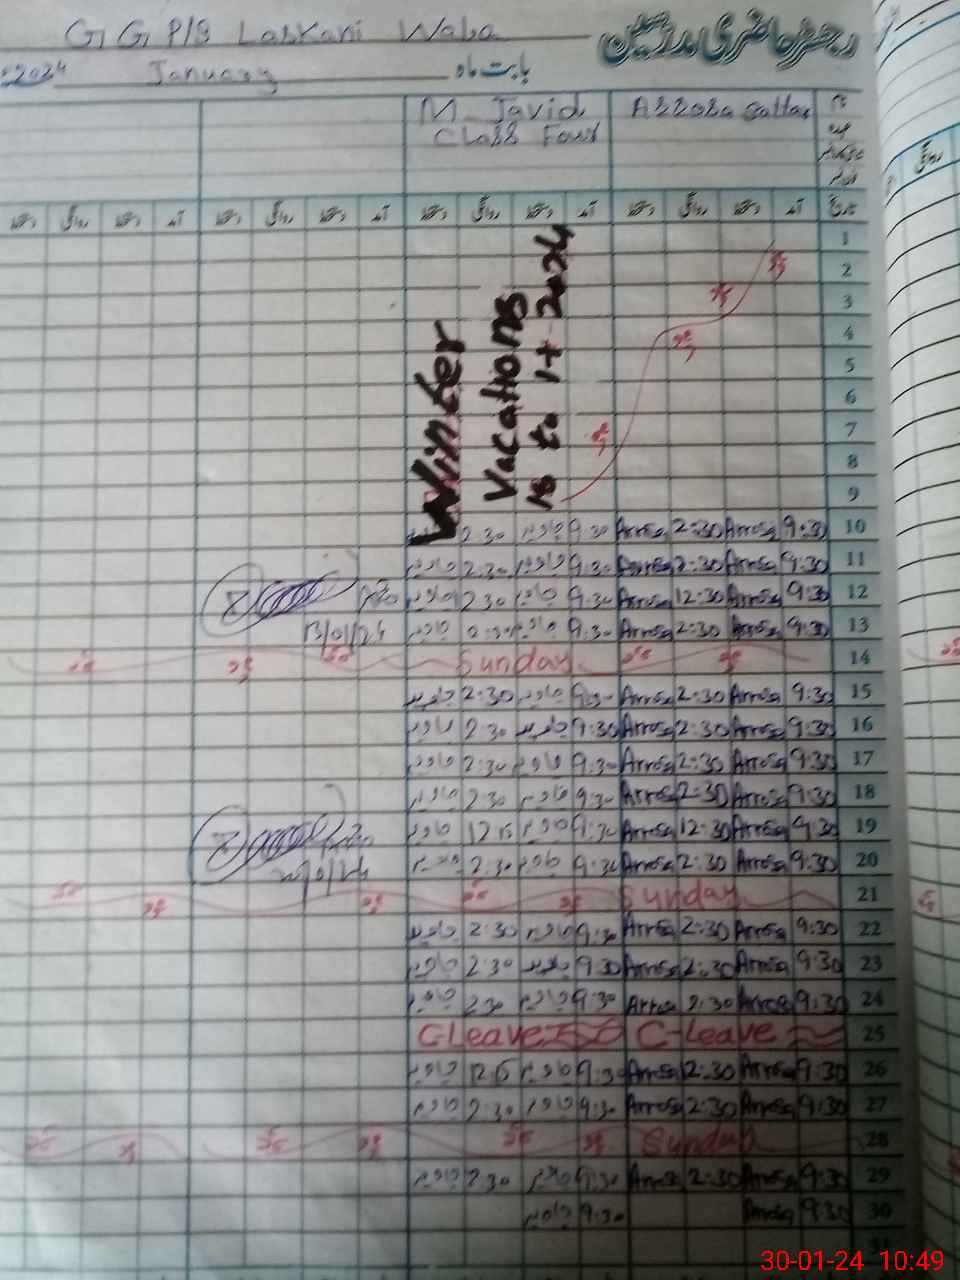 G G P/S Laskani Waba رجسٹر حاضری مدرسین
2024 January بابت ماہ
M. Javid Arrosa Sattar نام
Class Four عہدہ
دستخط روانگی دستخط آمد دستخط روانگی دستخط آمد دستخط روانگی دستخط آمد دستخط روانگی دستخط آمد تاریخ
Winter
Vacations
1
2
3
4
5
6
7
8
9
جاوید 2:30 جاوید 9:30 Arrosa 2:30 Arrosa 9:30 10
جاوید 2:30 جاوید 9:30 Arrosa 2:30 Arrosa 9:30 11
جاوید 2:30 جاوید 9:30 Arrosa 12:30 Arrosa 9:30 12
13/01/24 جاوید 2:30 جاوید 9:30 Arrosa 2:30 Arrosa 9:30 13
Sunday 14
جاوید 2:30 جاوید 9:30 Arrosa 2:30 Arrosa 9:30 15
جاوید 2:30 جاوید 9:30 Arrosa 2:30 Arrosa 9:30 16
جاوید 2:30 جاوید 9:30 Arrosa 2:30 Arrosa 9:30 17
جاوید 2:30 جاوید 9:30 Arrosa 2:30 Arrosa 9:30 18
جاوید 12:15 جاوید 9:30 Arrosa 12:30 Arrosa 9:30 19
جاوید 2:30 جاوید 9:30 Arrosa 2:30 Arrosa 9:30 20
Sunday 21
جاوید 2:30 جاوید 9:30 Arrosa 2:30 Arrosa 9:30 22
جاوید 2:30 جاوید 9:30 Arrosa 2:30 Arrosa 9:30 23
جاوید 2:30 جاوید 9:30 Arrosa 2:30 Arrosa 9:30 24
C-Leave C-Leave 25
جاوید 12:15 جاوید 9:30 Arrosa 2:30 Arrosa 9:30 26
جاوید 2:30 جاوید 9:30 Arrosa 2:30 Arrosa 9:30 27
Sunday 28
جاوید 2:30 جاوید 9:30 Arrosa 2:30 Arrosa 9:30 29
جاوید 9:30 Arrosa 9:30 30
31
30-01-24 10:49